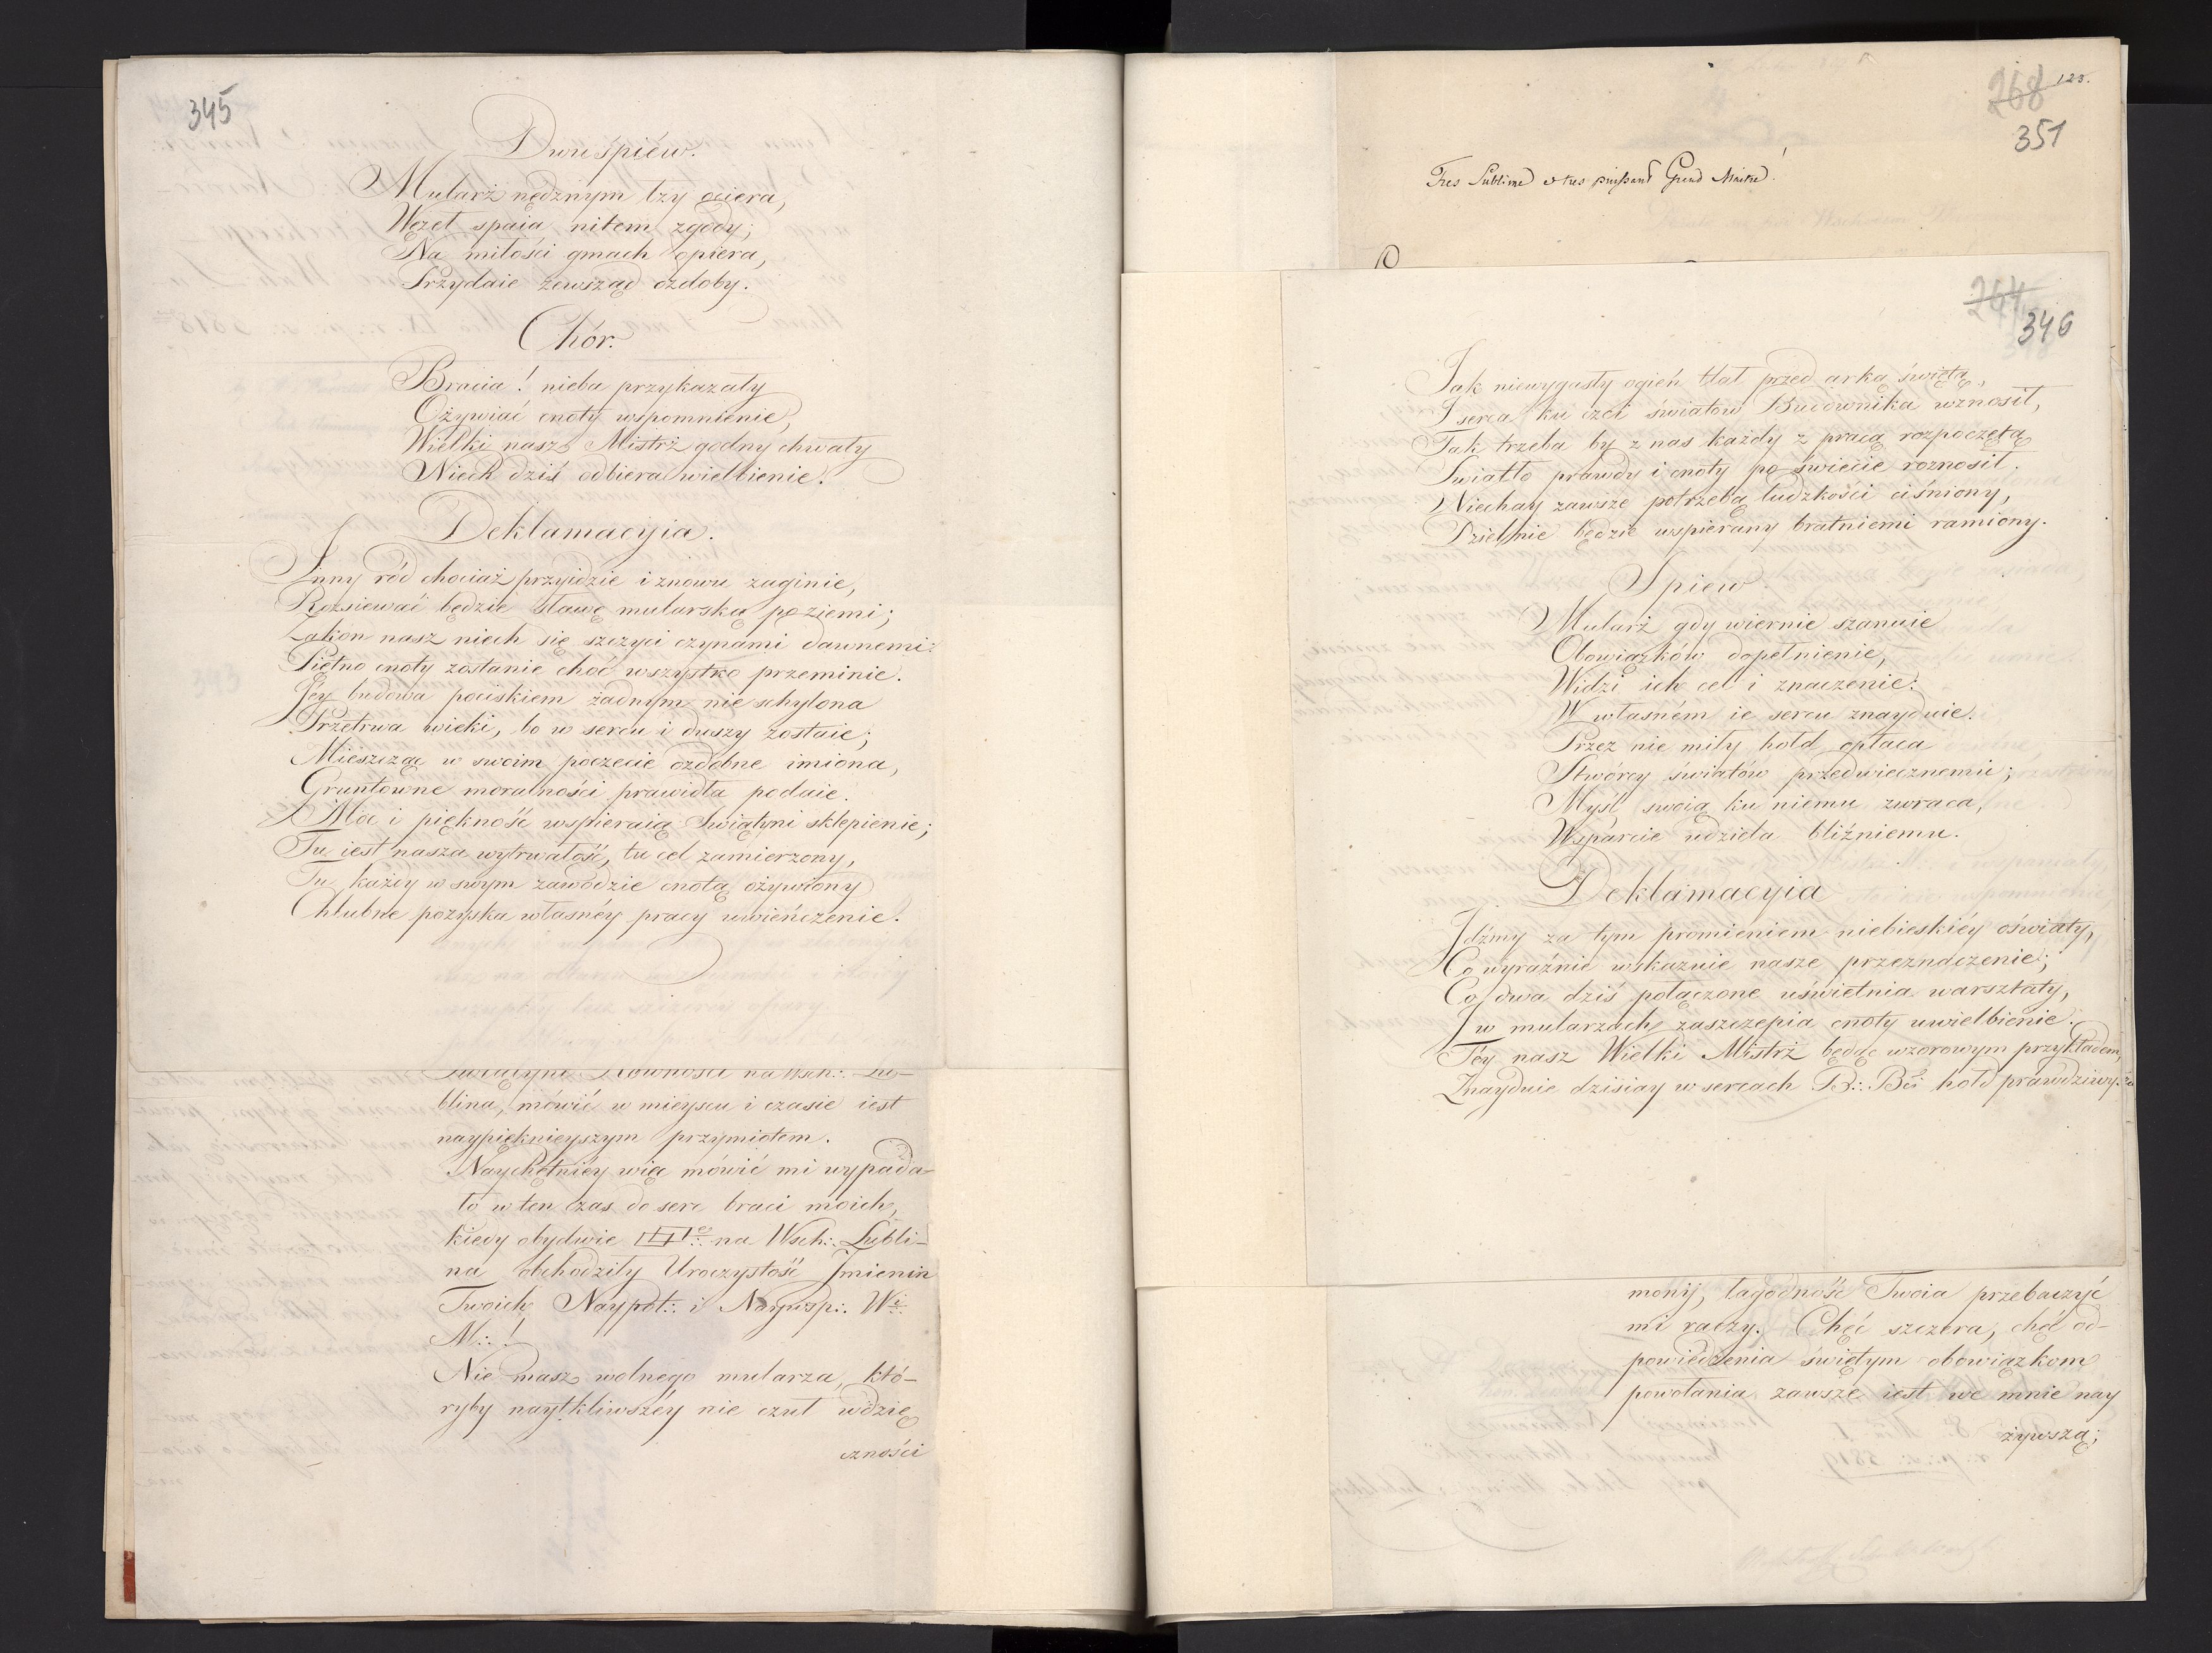 345
Dwuśpiéw.
Mularż nędznym łzy ociera,
Węzeł spaia miłem zgody;
Na miłości gmach opiera,
Przydaie zewsząd ozdoby.
Chór.
Bracia! nieba przykazały
Ożywiać cnoty wspomnienie,
Wielki nasz Mistrż godny chwały
Niech dziś odbiera wielbienie.
Deklamacyia.
Inny ród chociaż przyidzie i znowu zaginie,
Rozsiewać będzie sławę mularską po ziemi;
Zakon nasz niech się szczyci czynami dawnemi:
Piętno cnoty zostanie choć wszystko przeminie.
Jéy budowa pociskiem żadnym nie schylona
Przetrwa wieki, bo w sercu i duszy zostaie;
Mieszcząc w swoim poczecie ozdobne imiona,
Gruntowne moralności prawidła podaie.
Moc i piękność wspieraią Swiątyni sklepienie;
Tu iest nasza wytrwałość, tu cel zamierzony,
Tu każdy w swym zawodzie cnotą ożywiony
Chlubne pozyska własnéy pracy uwieńczenie.
Swiątyni Równości na Wsch:. Lu-
blina, mówić w mieyscu i czasie iest
naypięknieyszym przymiotem.
Naychętniéy więc mówić mi wypada-
ło w ten czas do serc braci moich,
kiedy obydwie na Wsch:. Lubli-
na obchodziły Uroczystość Jmienin
Twoich Naypot:. i Nayprzp:. W:.
M:. !
Nie masz wolnego mularza, któ-
ryby naytkliwszéy nie czuł wdzię
czności
268 123.
351
Tres Sublime & tres puissant Grand Maitre!
264
346
Jak niewygasły ogień tlał przed arką świętą,
I serca ku czci światów Budownika wznosił,
Tak trzeba by z nas każdy z pracą rozpoczętą
Swiatło prawdy i cnoty po świecie roznosił.
Niechay zawsze potrzebą ludzkości ciśniony,
Dzielnie będzie wspierany bratniemi ramiony.
Spiew.
Mularż gdy wiernie szanuie
Obowiązków dopełnienie,
Widzi ich cel i znaczenie:
W własném ie sercu znayduie.
Przez nie miły hołd opłaca
Stwórcy światów przedwiecznemu;
Myśl swoią ku niemu zwraca,
Wsparcie udziela bliźniemu.
Deklamacyia
Jdźmy za tym promieniem niebieskiéy oświaty,
Co wyraźnie wskazuie nasze przeznaczenie;
Co dwa dziś połączone uświetnia warsztaty,
J w mularzach zaszczepia cnoty uwielbienie.
Téy nasz Wielki Mistrż będąc wzorowym przykładem,
Znayduie dzisiay w sercach B:. Bci hołd prawdziwy:
monij, łagodność Twoia przebaczyć
mi raczy. Chęć szczera, chęć od-
powiedzenia świętym obowiązkom
powołania zawsze iest we mnie nay
żywszą;